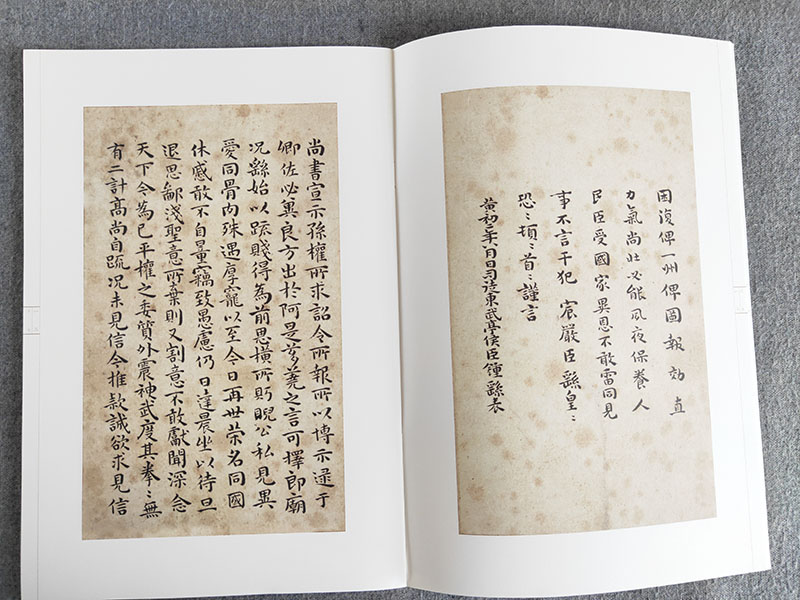 因復俾一州俾圖報効直
力氣尚壯必能夙夜保養人
民臣受國家異恩不敢雷同見
事不言干犯宸嚴臣繇皇〻
恐〻頓〻首〻謹言
黃初二年八月日司徒東武亭侯臣鍾繇表
尚書宣示孫權所求詔令所報所以博示逮于
卿佐必冀良方出於阿是芻蕘之言可擇郎廟
況繇始以疏賤得為前恩橫所盻睨公私見異
愛同骨肉殊遇厚寵以至今日再世榮名同國
休慼敢不自量竊致愚慮仍日達晨坐以待旦
退思鄙淺聖意所棄則又割意不敢獻聞深念
天下今為已平權之委質外震神武度其拳〻無
有二計高尚自疏況未見信今推款誠欲求見信